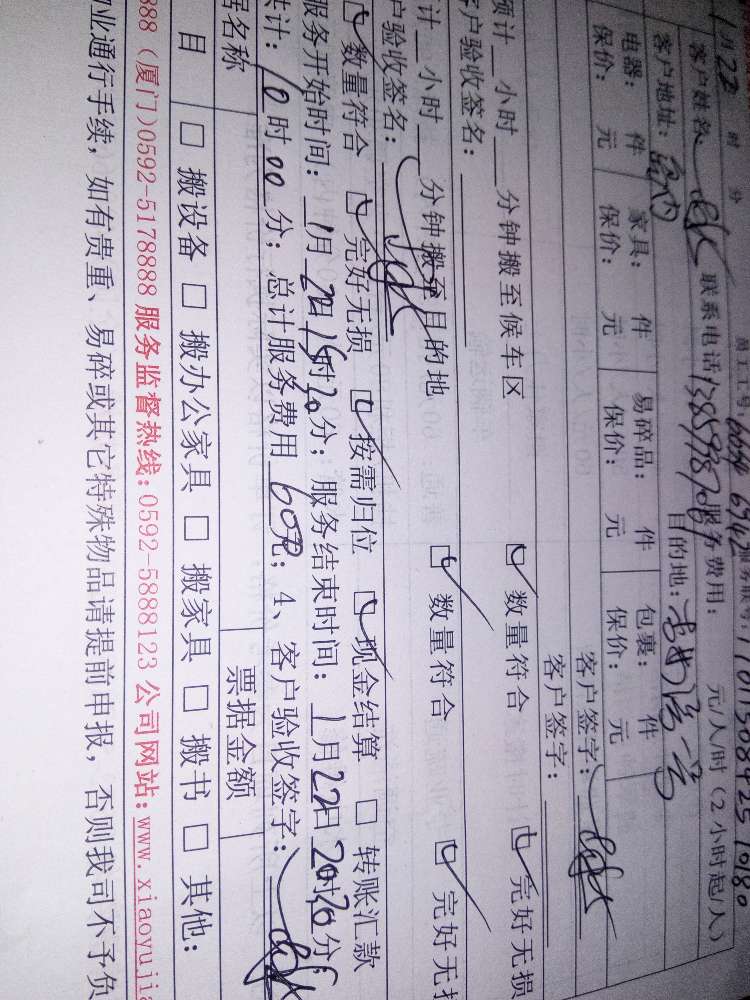 1月22 时 分
客户姓名 联系电话 服务费用: 元/人/时（2小时起/人）
客户地址: 岛内 目的地:
电器: 件 家具: 件 易碎品: 件 包裹: 件
保价: 元 保价: 元 保价: 元 保价: 元
客户签字:
客户签字:
预计__小时__分钟搬至候车区 ☑数量符合 ☑完好无损
客户验收签名:
计__小时__分钟搬至目的地 ☑数量符合 ☑完好无损
户验收签名:
☑数量符合 ☑完好无损 ☑按需归位 ☑现金结算 □转账汇款
服务开始时间: 1月22日15时20分; 服务结束时间: 1月22日20时20分;
计: 10时00分; 总计服务费用600元; 4、客户验收签字:
据名称 票据金额
目 □搬设备 □搬办公家具 □搬家具 □搬书 □其他:
888（厦门)0592-5178888 服务监督热线:0592-5888123 公司网站:www.xiaoyujia
业通行手续，如有贵重、易碎或其它特殊物品请提前申报，否则我司不予负